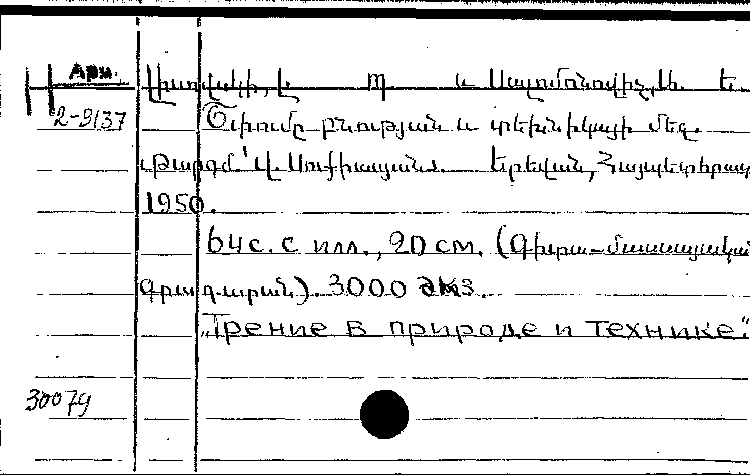 Арм.
Լիսովսկի, Լ. Պ. և Սալոմոնովիչ, Ա. Ե.
2-9137 Շփումը բնության և տեխնիկայի մեջ.
Թարգմ.՝ Վ. Սուքիասյան. Երևան, Հայպետհրատ
1950.
64 с. с илл., 20 см. (Գիտա-մասսայական
գրադարան). 3000 экз.
„Трение в природе и технике".
30079